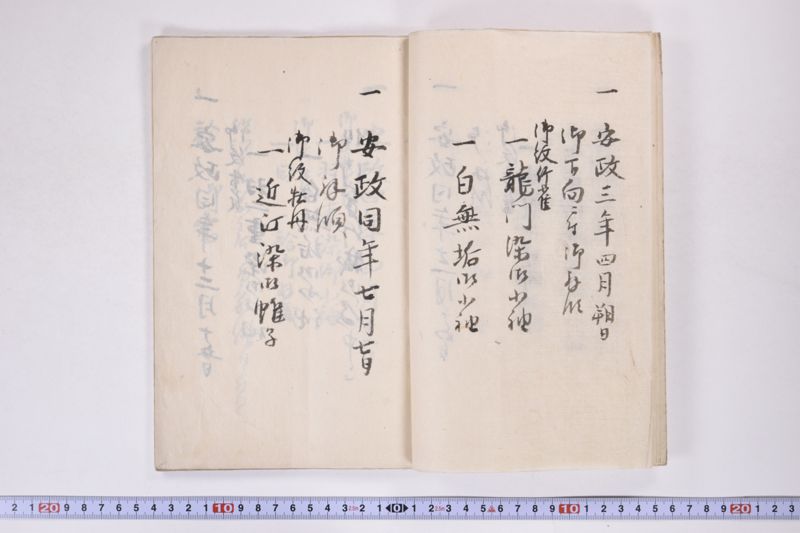 一 安政三年四月朔日
御下向ニ付御拝領
御紋竹雀
一 龍門染御小袖
一 白無垢御小袖
一 安政同年七月七日
御拝領
御紋牡丹
一 近江染御帷子
2 1 20 9 8 7 6 5 4 3 2 1 10 9 8 7 6 5 4 3 2.5m 2 1 0 1 2 2.5m 3 4 5 6 7 8 9 10 1 2 3 4 5 6 7 8 9 20 1 2 3